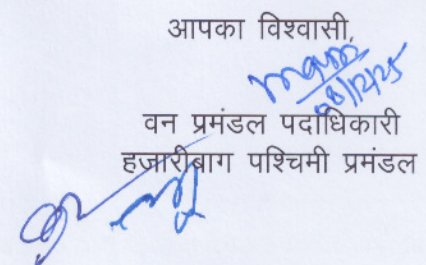 आपका विश्वासी,
08/12/25
वन प्रमंडल पदाधिकारी
हजारीबाग पश्चिमी प्रमंडल